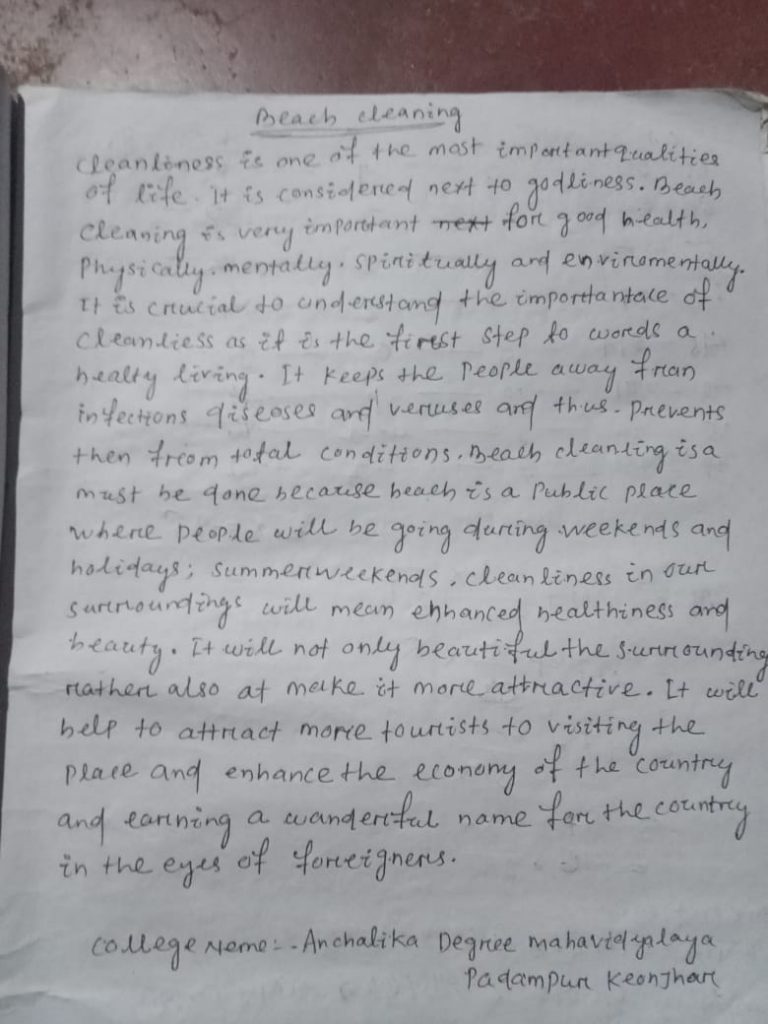 Beach cleaning
cleanliness is one of the most important qualities
of life. It is considered next to godliness. Beach
cleaning is very important next for good health,
Physically. mentally. spiritually and enviromentally.
It is crucial to understand the importantace of
cleanliess as it is the first step to words a
healty living. It keeps the people away from
infections diseases and veruses and thus. Prevents
then from total conditions. Beach cleanling is a
must be done because beach is a Public place
where people will be going during weekends and
holidays; summer weekends. cleanliness in our
surroundings will mean enhanced healthiness and
beauty. It will not only beautiful the surrounding
rather also at make it more attractive. It will
help to attract more tourists to visiting the
place and enhance the economy of the country
and earning a wanderful name for the country
in the eyes of foreigners.
College Neme:- Anchalika Degree mahavidyalaya
Padampur Keonjhar